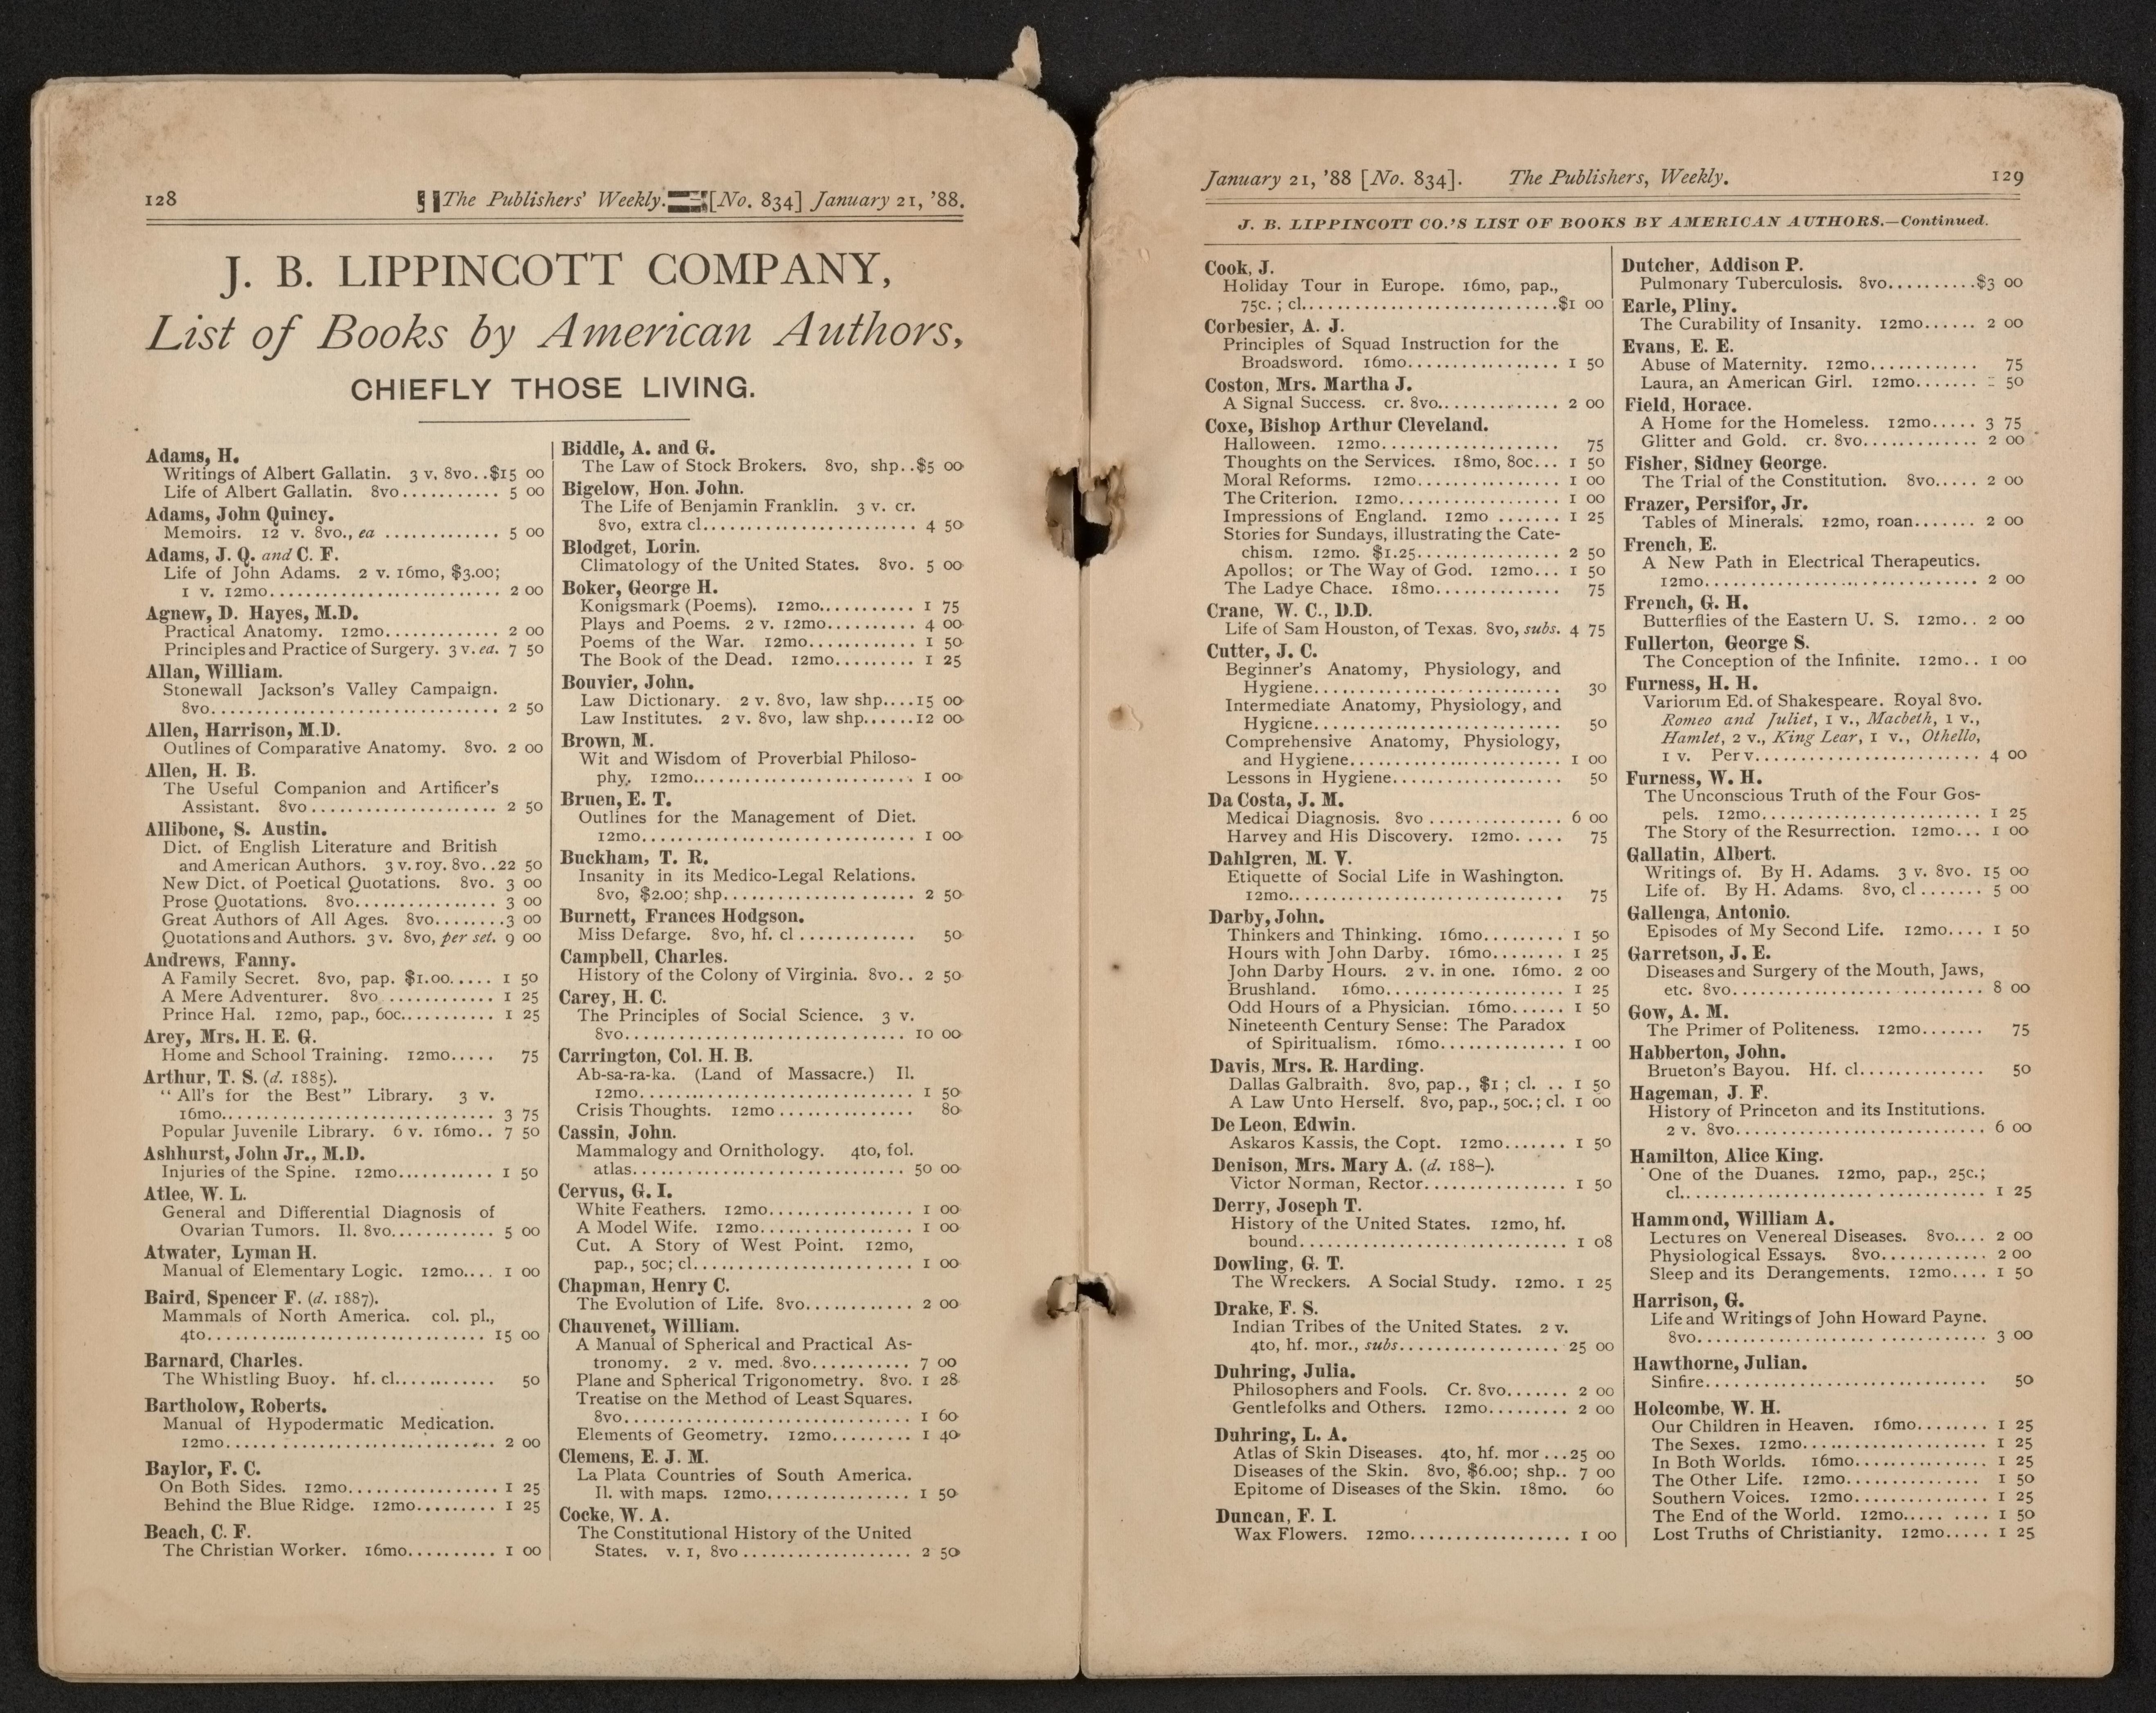 128 The Publishers' Weekly. [No. 834] January 21, '88.
J. B. LIPPINCOTT COMPANY,
List of Books by American Authors,
CHIEFLY THOSE LIVING.
Adams, H.
Writings of Albert Gallatin. 3 v. 8vo..$15 00
Life of Albert Gallatin. 8vo........... 5 00
Adams, John Quincy.
Memoirs. 12 v. 8vo., ea ............. 5 00
Adams, J. Q. and C. F.
Life of John Adams. 2 v. 16mo, $3.00;
1 v. 12mo.......................... 2 00
Agnew, D. Hayes, M.D.
Practical Anatomy. 12mo............. 2 00
Principles and Practice of Surgery. 3 v. ea. 7 50
Allan, William.
Stonewall Jackson's Valley Campaign.
8vo................................ 2 50
Allen, Harrison, M.D.
Outlines of Comparative Anatomy. 8vo. 2 00
Allen, H. B.
The Useful Companion and Artificer's
Assistant. 8vo..................... 2 50
Allibone, S. Austin.
Dict. of English Literature and British
and American Authors. 3 v. roy. 8vo..22 50
New Dict. of Poetical Quotations. 8vo. 3 00
Prose Quotations. 8vo................ 3 00
Great Authors of All Ages. 8vo........3 00
Quotations and Authors. 3 v. 8vo, per set. 9 00
Andrews, Fanny.
A Family Secret. 8vo, pap. $1.00..... 1 50
A Mere Adventurer. 8vo............. 1 25
Prince Hal. 12mo, pap., 60c.......... 1 25
Arey, Mrs. H. E. G.
Home and School Training. 12mo..... 75
Arthur, T. S. (d. 1885).
"All's for the Best" Library. 3 v.
16mo.............................. 3 75
Popular Juvenile Library. 6 v. 16mo.. 7 50
Ashhurst, John Jr., M.D.
Injuries of the Spine. 12mo........... 1 50
Atlee, W. L.
General and Differential Diagnosis of
Ovarian Tumors. Il. 8vo............ 5 00
Atwater, Lyman H.
Manual of Elementary Logic. 12mo.... 1 00
Baird, Spencer F. (d. 1887).
Mammals of North America. col. pl.,
4to............................... 15 00
Barnard, Charles.
The Whistling Buoy. hf. cl........... 50
Bartholow, Roberts.
Manual of Hypodermatic Medication.
12mo.............................. 2 00
Baylor, F. C.
On Both Sides. 12mo................. 1 25
Behind the Blue Ridge. 12mo......... 1 25
Beach, C. F.
The Christian Worker. 16mo.......... 1 00
Biddle, A. and G.
The Law of Stock Brokers. 8vo, shp..$5 00
Bigelow, Hon. John.
The Life of Benjamin Franklin. 3 v. cr.
8vo, extra cl....................... 4 50
Blodget, Lorin.
Climatology of the United States. 8vo. 5 00
Boker, George H.
Konigsmark (Poems). 12mo........... 1 75
Plays and Poems. 2 v. 12mo.......... 4 00
Poems of the War. 12mo............. 1 50
The Book of the Dead. 12mo......... 1 25
Bouvier, John.
Law Dictionary. 2 v. 8vo, law shp....15 00
Law Institutes. 2 v. 8vo, law shp......12 00
Brown, M.
Wit and Wisdom of Proverbial Philoso-
phy. 12mo........................ 1 00
Bruen, E. T.
Outlines for the Management of Diet.
12mo.............................. 1 00
Buckham, T. R.
Insanity in its Medico-Legal Relations.
8vo, $2.00; shp..................... 2 50
Burnett, Frances Hodgson.
Miss Defarge. 8vo, hf. cl............. 50
Campbell, Charles.
History of the Colony of Virginia. 8vo.. 2 50
Carey, H. C.
The Principles of Social Science. 3 v.
8vo............................... 10 00
Carrington, Col. H. B.
Ab-sa-ra-ka. (Land of Massacre.) Il.
12mo.............................. 1 50
Crisis Thoughts. 12mo............... 80
Cassin, John.
Mammalogy and Ornithology. 4to, fol.
atlas.............................. 50 00
Cervus, G. I.
White Feathers. 12mo................ 1 00
A Model Wife. 12mo................. 1 00
Cut. A Story of West Point. 12mo,
pap., 50c; cl....................... 1 00
Chapman, Henry C.
The Evolution of Life. 8vo............ 2 00
Chauvenet, William.
A Manual of Spherical and Practical As-
tronomy. 2 v. med. 8vo........... 7 00
Plane and Spherical Trigonometry. 8vo. 1 28
Treatise on the Method of Least Squares.
8vo................................ 1 60
Elements of Geometry. 12mo......... 1 40
Clemens, E. J. M.
La Plata Countries of South America.
Il. with maps. 12mo................ 1 50
Cocke, W. A.
The Constitutional History of the United
States. v. 1, 8vo................... 2 50
January 21, '88 [No. 834]. The Publishers, Weekly. 129
J. B. LIPPINCOTT CO.'S LIST OF BOOKS BY AMERICAN AUTHORS.—Continued.
Cook, J.
Holiday Tour in Europe. 16mo, pap.,
75c.; cl............................$1 00
Corbesier, A. J.
Principles of Squad Instruction for the
Broadsword. 16mo................. 1 50
Coston, Mrs. Martha J.
A Signal Success. cr. 8vo............. 2 00
Coxe, Bishop Arthur Cleveland.
Halloween. 12mo.................... 75
Thoughts on the Services. 18mo, 80c... 1 50
Moral Reforms. 12mo................ 1 00
The Criterion. 12mo.................. 1 00
Impressions of England. 12mo ....... 1 25
Stories for Sundays, illustrating the Cate-
chism. 12mo. $1.25................ 2 50
Apollos; or The Way of God. 12mo... 1 50
The Ladye Chace. 18mo.............. 75
Crane, W. C., D.D.
Life of Sam Houston, of Texas. 8vo, subs. 4 75
Cutter, J. C.
Beginner's Anatomy, Physiology, and
Hygiene........................... 30
Intermediate Anatomy, Physiology, and
Hygiene........................... 50
Comprehensive Anatomy, Physiology,
and Hygiene....................... 1 00
Lessons in Hygiene................... 50
Da Costa, J. M.
Medical Diagnosis. 8vo............... 6 00
Harvey and His Discovery. 12mo..... 75
Dahlgren, M. V.
Etiquette of Social Life in Washington.
12mo.............................. 75
Darby, John.
Thinkers and Thinking. 16mo......... 1 50
Hours with John Darby. 16mo........ 1 25
John Darby Hours. 2 v. in one. 16mo. 2 00
Brushland. 16mo.................... 1 25
Odd Hours of a Physician. 16mo...... 1 50
Nineteenth Century Sense: The Paradox
of Spiritualism. 16mo.............. 1 00
Davis, Mrs. R. Harding.
Dallas Galbraith. 8vo, pap., $1; cl. .. 1 50
A Law Unto Herself. 8vo, pap., 50c.; cl. 1 00
De Leon, Edwin.
Askaros Kassis, the Copt. 12mo....... 1 50
Denison, Mrs. Mary A. (d. 188–).
Victor Norman, Rector................ 1 50
Derry, Joseph T.
History of the United States. 12mo, hf.
bound............................. 1 08
Dowling, G. T.
The Wreckers. A Social Study. 12mo. 1 25
Drake, F. S.
Indian Tribes of the United States. 2 v.
4to, hf. mor., subs.................. 25 00
Duhring, Julia.
Philosophers and Fools. Cr. 8vo....... 2 00
Gentlefolks and Others. 12mo......... 2 00
Duhring, L. A.
Atlas of Skin Diseases. 4to, hf. mor...25 00
Diseases of the Skin. 8vo, $6.00; shp.. 7 00
Epitome of Diseases of the Skin. 18mo. 60
Duncan, F. I.
Wax Flowers. 12mo.................. 1 00
Dutcher, Addison P.
Pulmonary Tuberculosis. 8vo..........$3 00
Earle, Pliny.
The Curability of Insanity. 12mo...... 2 00
Evans, E. E.
Abuse of Maternity. 12mo............ 75
Laura, an American Girl. 12mo....... 50
Field, Horace.
A Home for the Homeless. 12mo..... 3 75
Glitter and Gold. cr. 8vo............. 2 00
Fisher, Sidney George.
The Trial of the Constitution. 8vo..... 2 00
Frazer, Persifor, Jr.
Tables of Minerals. 12mo, roan....... 2 00
French, E.
A New Path in Electrical Therapeutics.
12mo.............................. 2 00
French, G. H.
Butterflies of the Eastern U. S. 12mo.. 2 00
Fullerton, George S.
The Conception of the Infinite. 12mo.. 1 00
Furness, H. H.
Variorum Ed. of Shakespeare. Royal 8vo.
Romeo and Juliet, 1 v., Macbeth, 1 v.,
Hamlet, 2 v., King Lear, 1 v., Othello,
1 v. Per v......................... 4 00
Furness, W. H.
The Unconscious Truth of the Four Gos-
pels. 12mo........................ 1 25
The Story of the Resurrection. 12mo... 1 00
Gallatin, Albert.
Writings of. By H. Adams. 3 v. 8vo. 15 00
Life of. By H. Adams. 8vo, cl....... 5 00
Gallenga, Antonio.
Episodes of My Second Life. 12mo.... 1 50
Garretson, J. E.
Diseases and Surgery of the Mouth, Jaws,
etc. 8vo............................ 8 00
Gow, A. M.
The Primer of Politeness. 12mo....... 75
Habberton, John.
Brueton's Bayou. Hf. cl.............. 50
Hageman, J. F.
History of Princeton and its Institutions.
2 v. 8vo............................ 6 00
Hamilton, Alice King.
One of the Duanes. 12mo, pap., 25c.;
cl................................. 1 25
Hammond, William A.
Lectures on Venereal Diseases. 8vo.... 2 00
Physiological Essays. 8vo............ 2 00
Sleep and its Derangements. 12mo.... 1 50
Harrison, G.
Life and Writings of John Howard Payne.
8vo................................ 3 00
Hawthorne, Julian.
Sinfire............................... 50
Holcombe, W. H.
Our Children in Heaven. 16mo........ 1 25
The Sexes. 12mo.................... 1 25
In Both Worlds. 16mo............... 1 25
The Other Life. 12mo............... 1 50
Southern Voices. 12mo............... 1 25
The End of the World. 12mo..... .... 1 50
Lost Truths of Christianity. 12mo..... 1 25